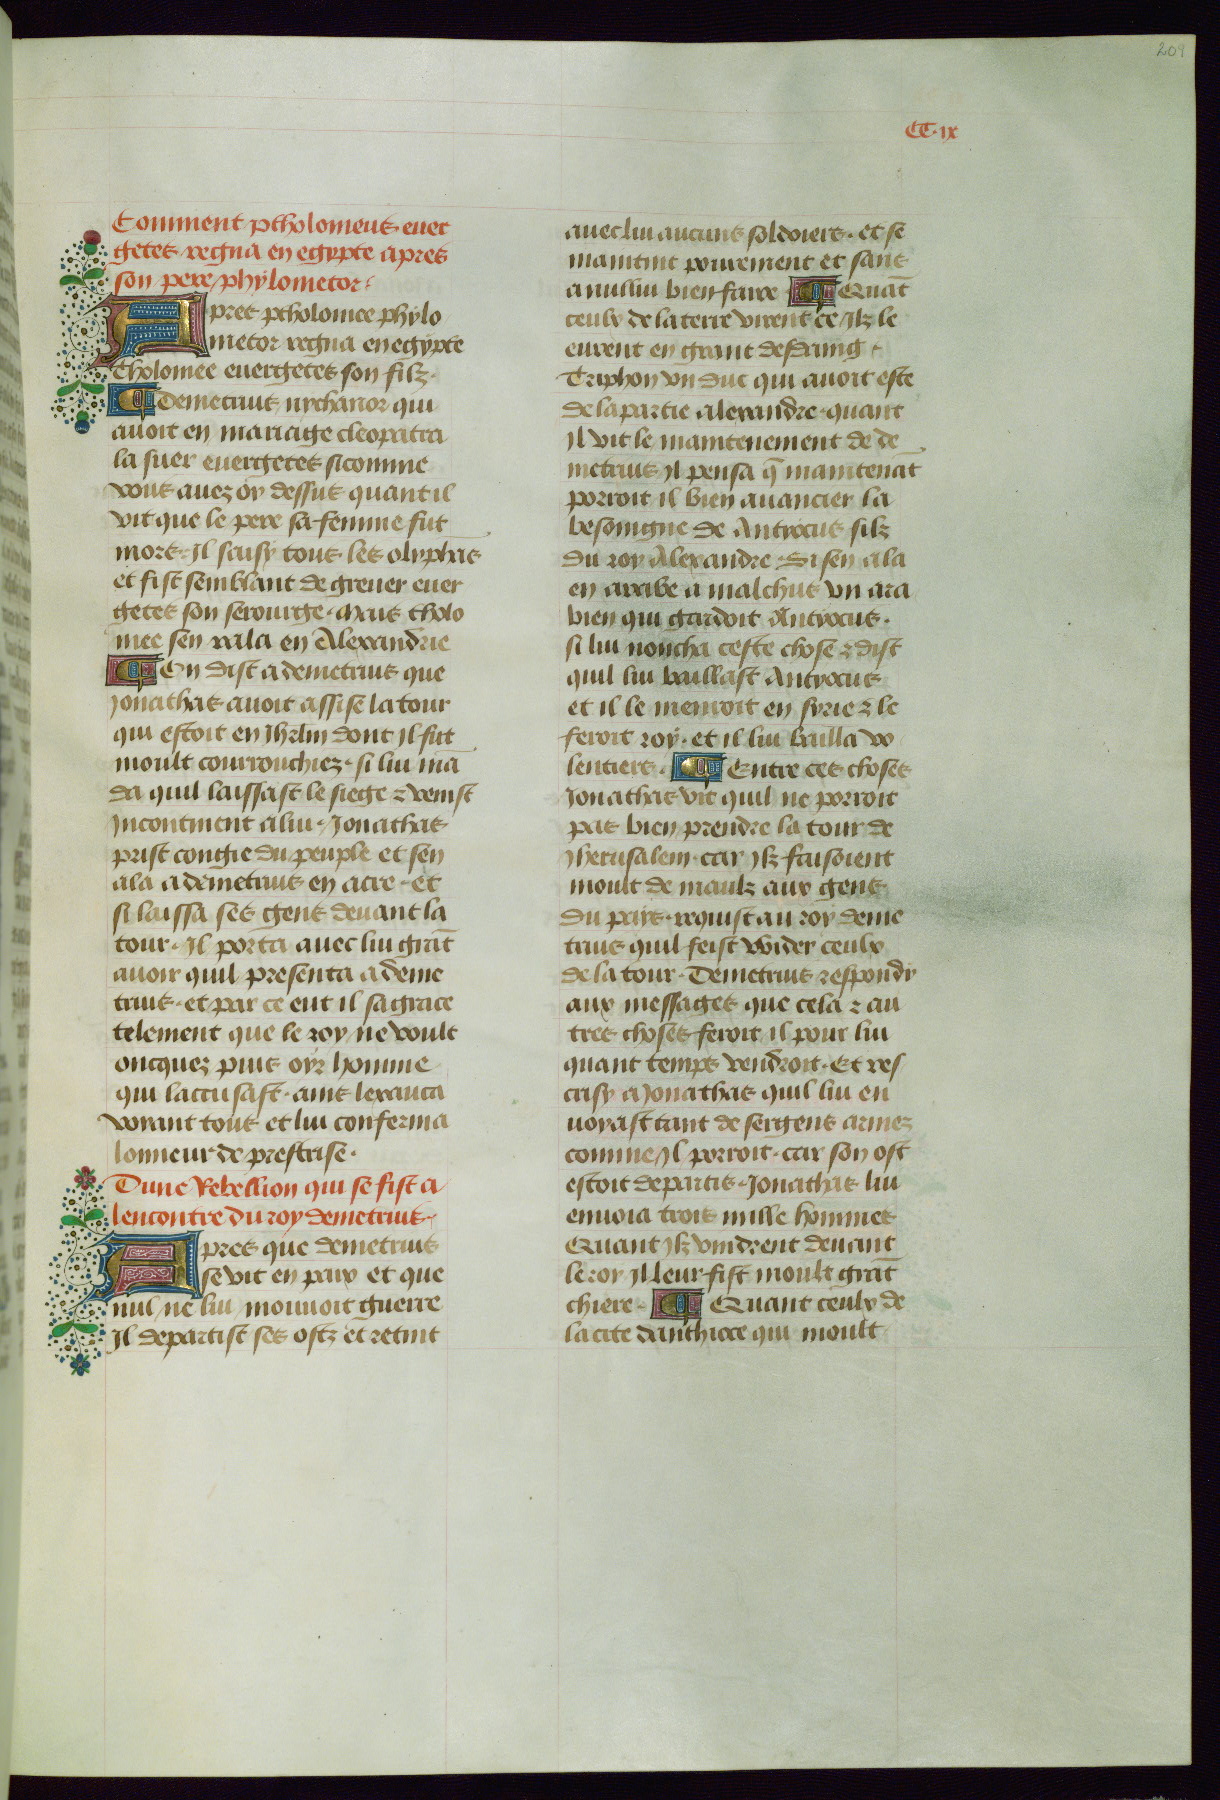 209
CC·ix
Comment ptholomeus euer
getes regna en egypte apres
son pere phylometor·
Apres ptholomee phylo
metor regna en egypte
tholomee euergetes son filz·
Demetrius nychanor qui
auoit en mariaige cleopatra
la suer euergetes sicomme
vous auez oy dessus quant il
vit que le pere sa femme fut
mors· Il saisy tous les olyphās
et fist semblant de greuer euer
getes son serourge· Mais tholo
mee sen rala en Alexandrie
On dist a demetrius que
Jonathas auoit assise la tour
qui estoit en Jhrlm dont il fut
moult courrouchiez· si lui mā
da quil laissast le siege ⁊ venist
Incontinent a lui· Jonathas
prist congie du peuple et sen
ala a demetrius en acre· et
si laissa ses gens deuant la
tour· Il porta auec lui grāt
auoir quil presenta a deme
trius· et par ce eut il sa grace
telement que le roy ne voult
oncquez puis oyr homme
qui laccusast· ains lexauca
voyant tous et lui conferma
lonneur de prestrise·
Dune Rebellion qui se fist a
lencontre du roy demetrius·
Apres que demetrius
se vit en paix et que
nul ne lui mouuoit guerre
Il departist ses ostz et retint
auec lui aucuns soldoiers· et se
maintint pourement et sans
a nullui bien faire Quāt
ceulx de la terre virent ce Ilz le
eurent en grant desdaing·
Triphon vn duc qui auoit este
de la partie alexandre· quant
Il vit le maintenement de de
metrius Il pensa q̄ maintenāt
porroit il bien auancier la
besoingne de Antyocus filz
du roy Alexandre· Si sen ala
en arabe a malchus vn ara
bien qui gardoit Antyocus·
si lui noncha ceste chose ⁊ dist
quil lui baillast Antyocus
et il le menroit en syrie ⁊ le
feroit roy· et il lui bailla vo
lentiers· Entre ces choses
Jonathas vit quil ne porroit
pas bien prendre la tour de
Jherusalem· car Ilz faisoient
moult de maulz aux gens
du pays· requist au roy deme
trius quil feist wider ceulx
de la tour· Demetrius respondy
aux messages que cela ⁊ au
tres choses feroit il pour lui
quant temps vendroit· Et res
crisy a Jonathas quil lui en
uoyast tant de sergens armez
comme Il porroit· car son ost
estoit departis· Jonathas lui
enuoia trois mille hommes
Quant Ilz vindrent deuant
le roy Il leur fist moult grāt
chiere· Quant ceulx de
la cite danthioce qui moult